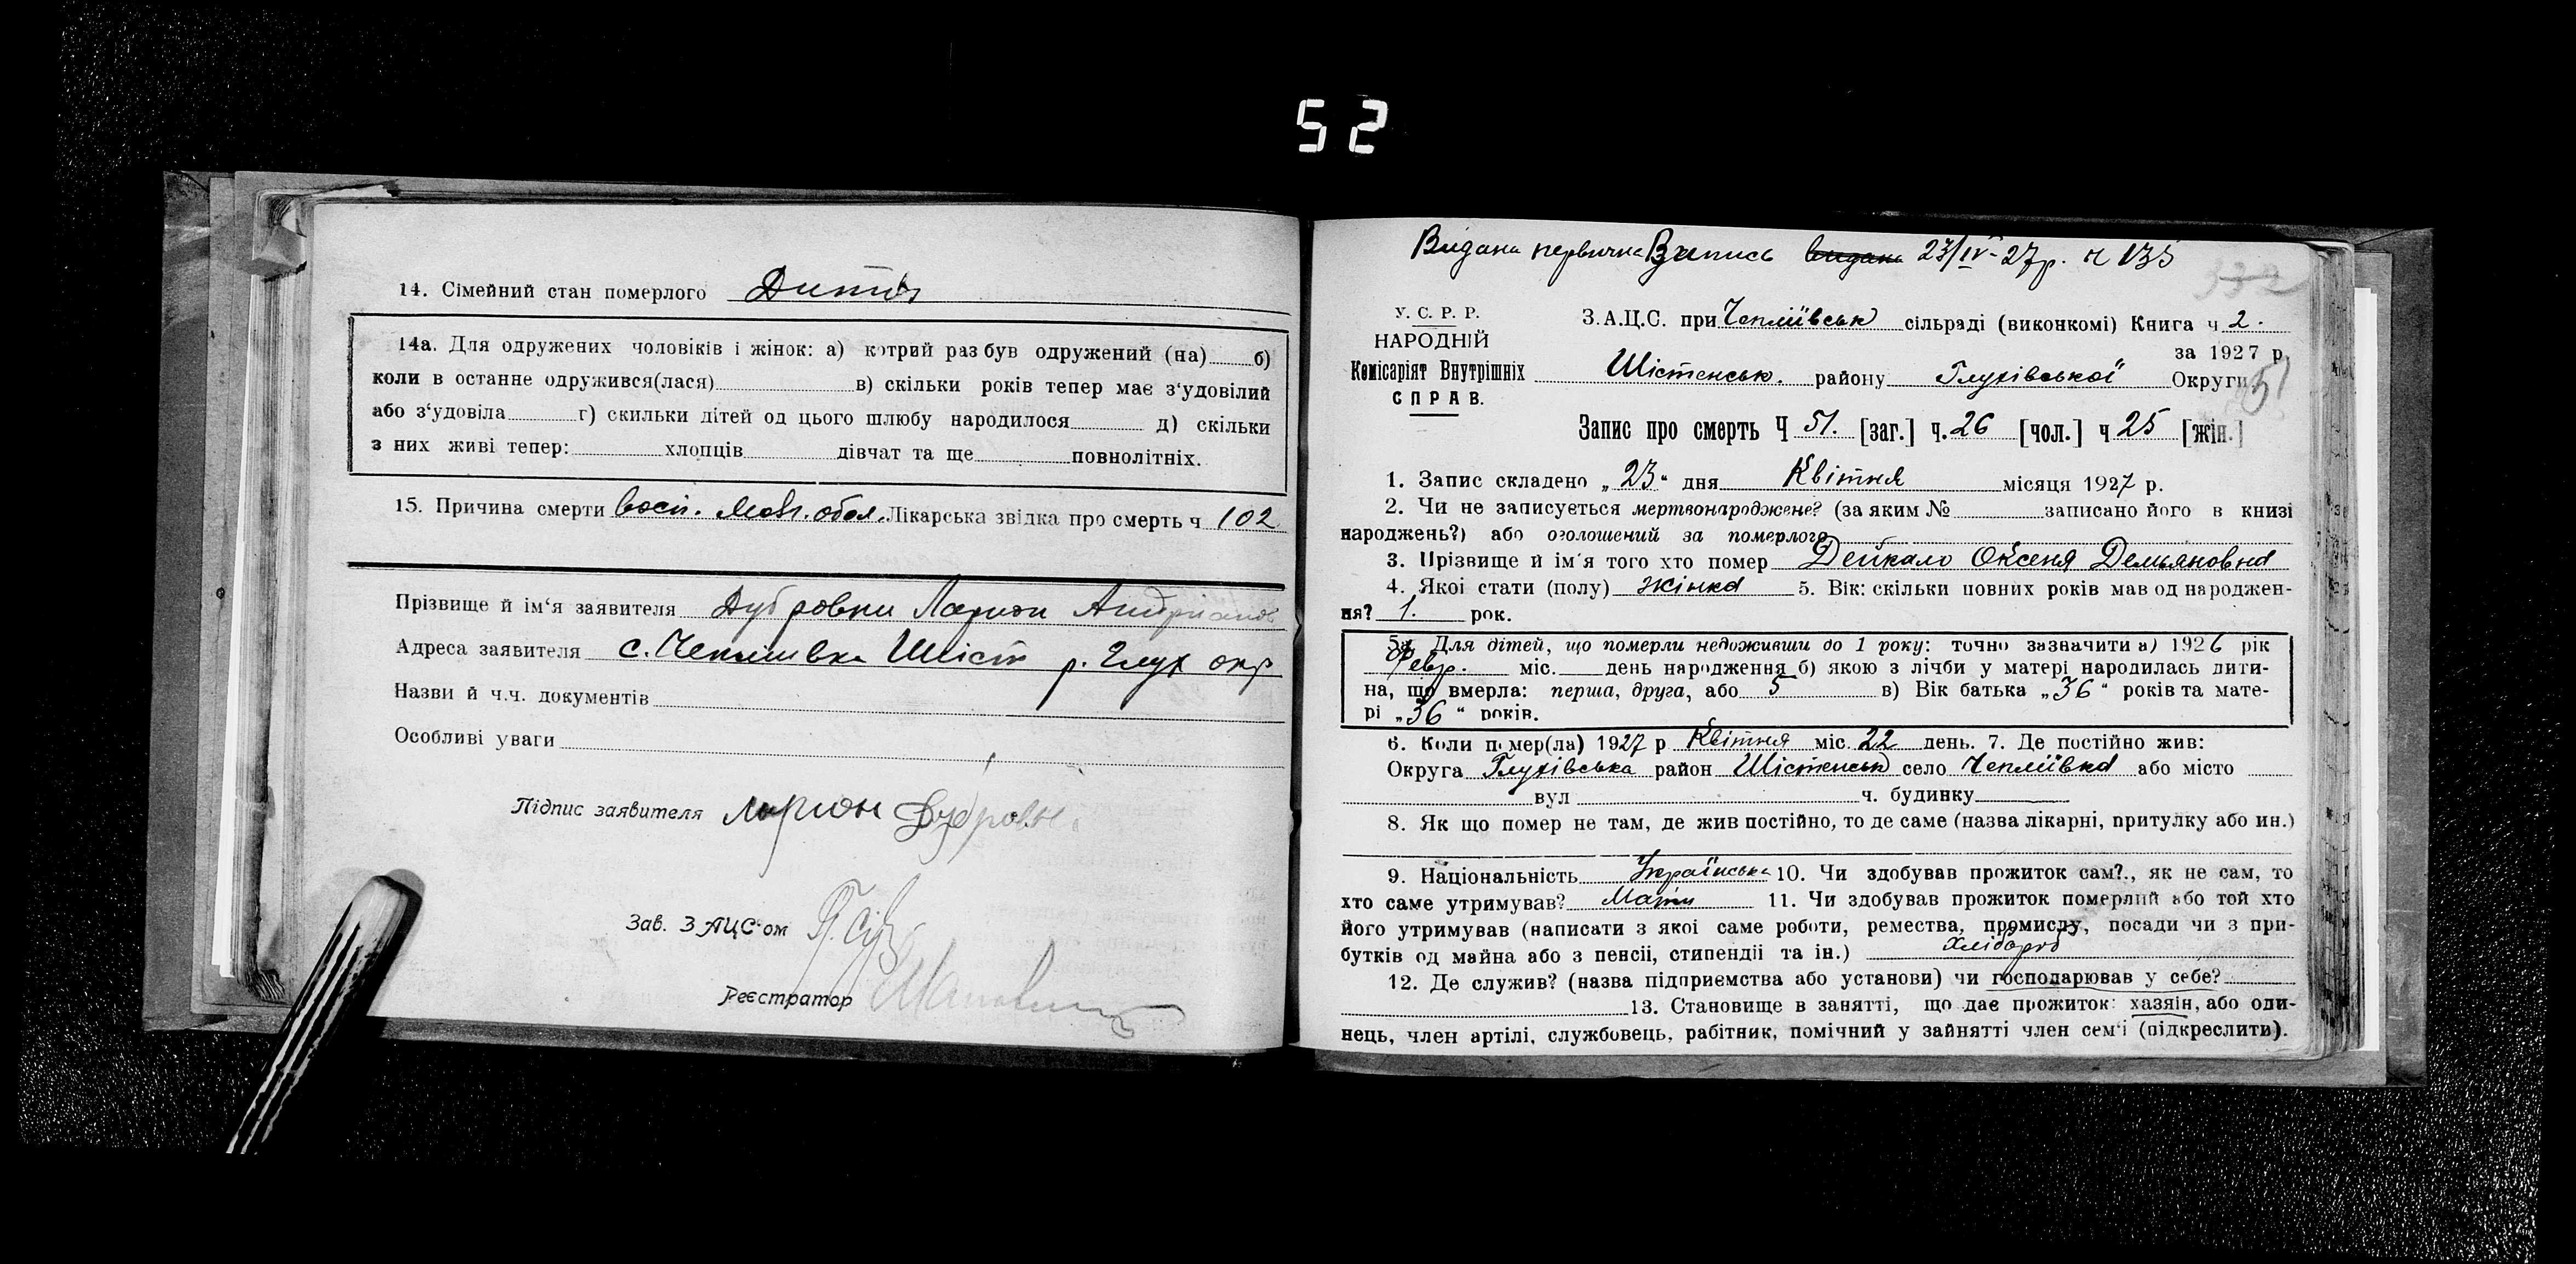 52
14. Сімейний стан померлого Дитя
14а. Для одружених чоловіків і жінок: а) котрий раз був одружений (на) б)
коли в останнє одружився(лася) в) скільки років тепер має з‘удовілий
або з‘удовіла г) скильки дітей од цього шлюбу народилося д) скільки
з них живі тепер: хлопців дівчат та ще повнолітніх.
15. Причина смерти восп. Мозг. обол. Лікарська звідка про смерть ч 102
Прізвище й ім‘я заявителя Дубровки Ларион
Адреса заявителя с. Чепліивка Шіст р. Глух окр
Назви й ч.ч. документів
Особливі уваги
Підпис заявителя Ларион
Зав. ЗАЦС‘ом
Реєстратор
Видана первична Взапись видана 23/IV-27р. ч 135
332
У. С. Р. Р.
НАРОДНІЙ
Комісаріят Внутрішніх
СПРАВ.
З.А.Ц.С. при Чепліївськ сільраді (виконкомі) Книга ч 2.
за 1927 р.
Шістенськ. району Глухівської Округи
51
Запис про смерть Ч 51. [заг.] ч. 26 [чол.] ч 25 [жін.]
1. Запис складено „23“ дня Квітня місяця 1927 р.
2. Чи не записується мертвонароджене? (за яким № записано його в книзі
народжень?) або оголошений за померлого
3. Прізвище й ім‘я того хто помер Дейкало Оксеня Демьяновна
4. Якої стати (полу) жінка 5. Вік: скільки повних років мав од народжен-
ня? 1. рок.
5а Для дітей, що померли недоживши до 1 року: точно зазначити а) 1926 рік
февр. міс. день народження б) якою з лічби у матері народилась дити-
на, що вмерла: перша, друга, або 5 в) Вік батька „36“ років та мате-
рі „36“ років.
6. Коли помер(ла) 1927 р Квітня міс. 22 день. 7. Де постійно жив:
Округа Глухівська район Шістенськ село Чепліївка або місто
вул ч. будинку
8. Як що помер не там, де жив постійно, то де саме (назва лікарні, притулку або ин.)
9. Національність Українська 10. Чи здобував прожиток сам?., як не сам, то
хто саме утримував? Мати 11. Чи здобував прожиток померлий або той хто
його утримував (написати з якої саме роботи, ремества, промислу, посади чи з при-
бутків од майна або з пенсії, стипендії та ін.) Хлібороб
12. Де служив? (назва підприємства або установи) чи господарював у себе?
13. Становище в занятті, що дає прожиток: хазяін, або оди-
нець, член артілі, службовець, рабітник, помічний у зайнятті член сем‘ї (підкреслити).